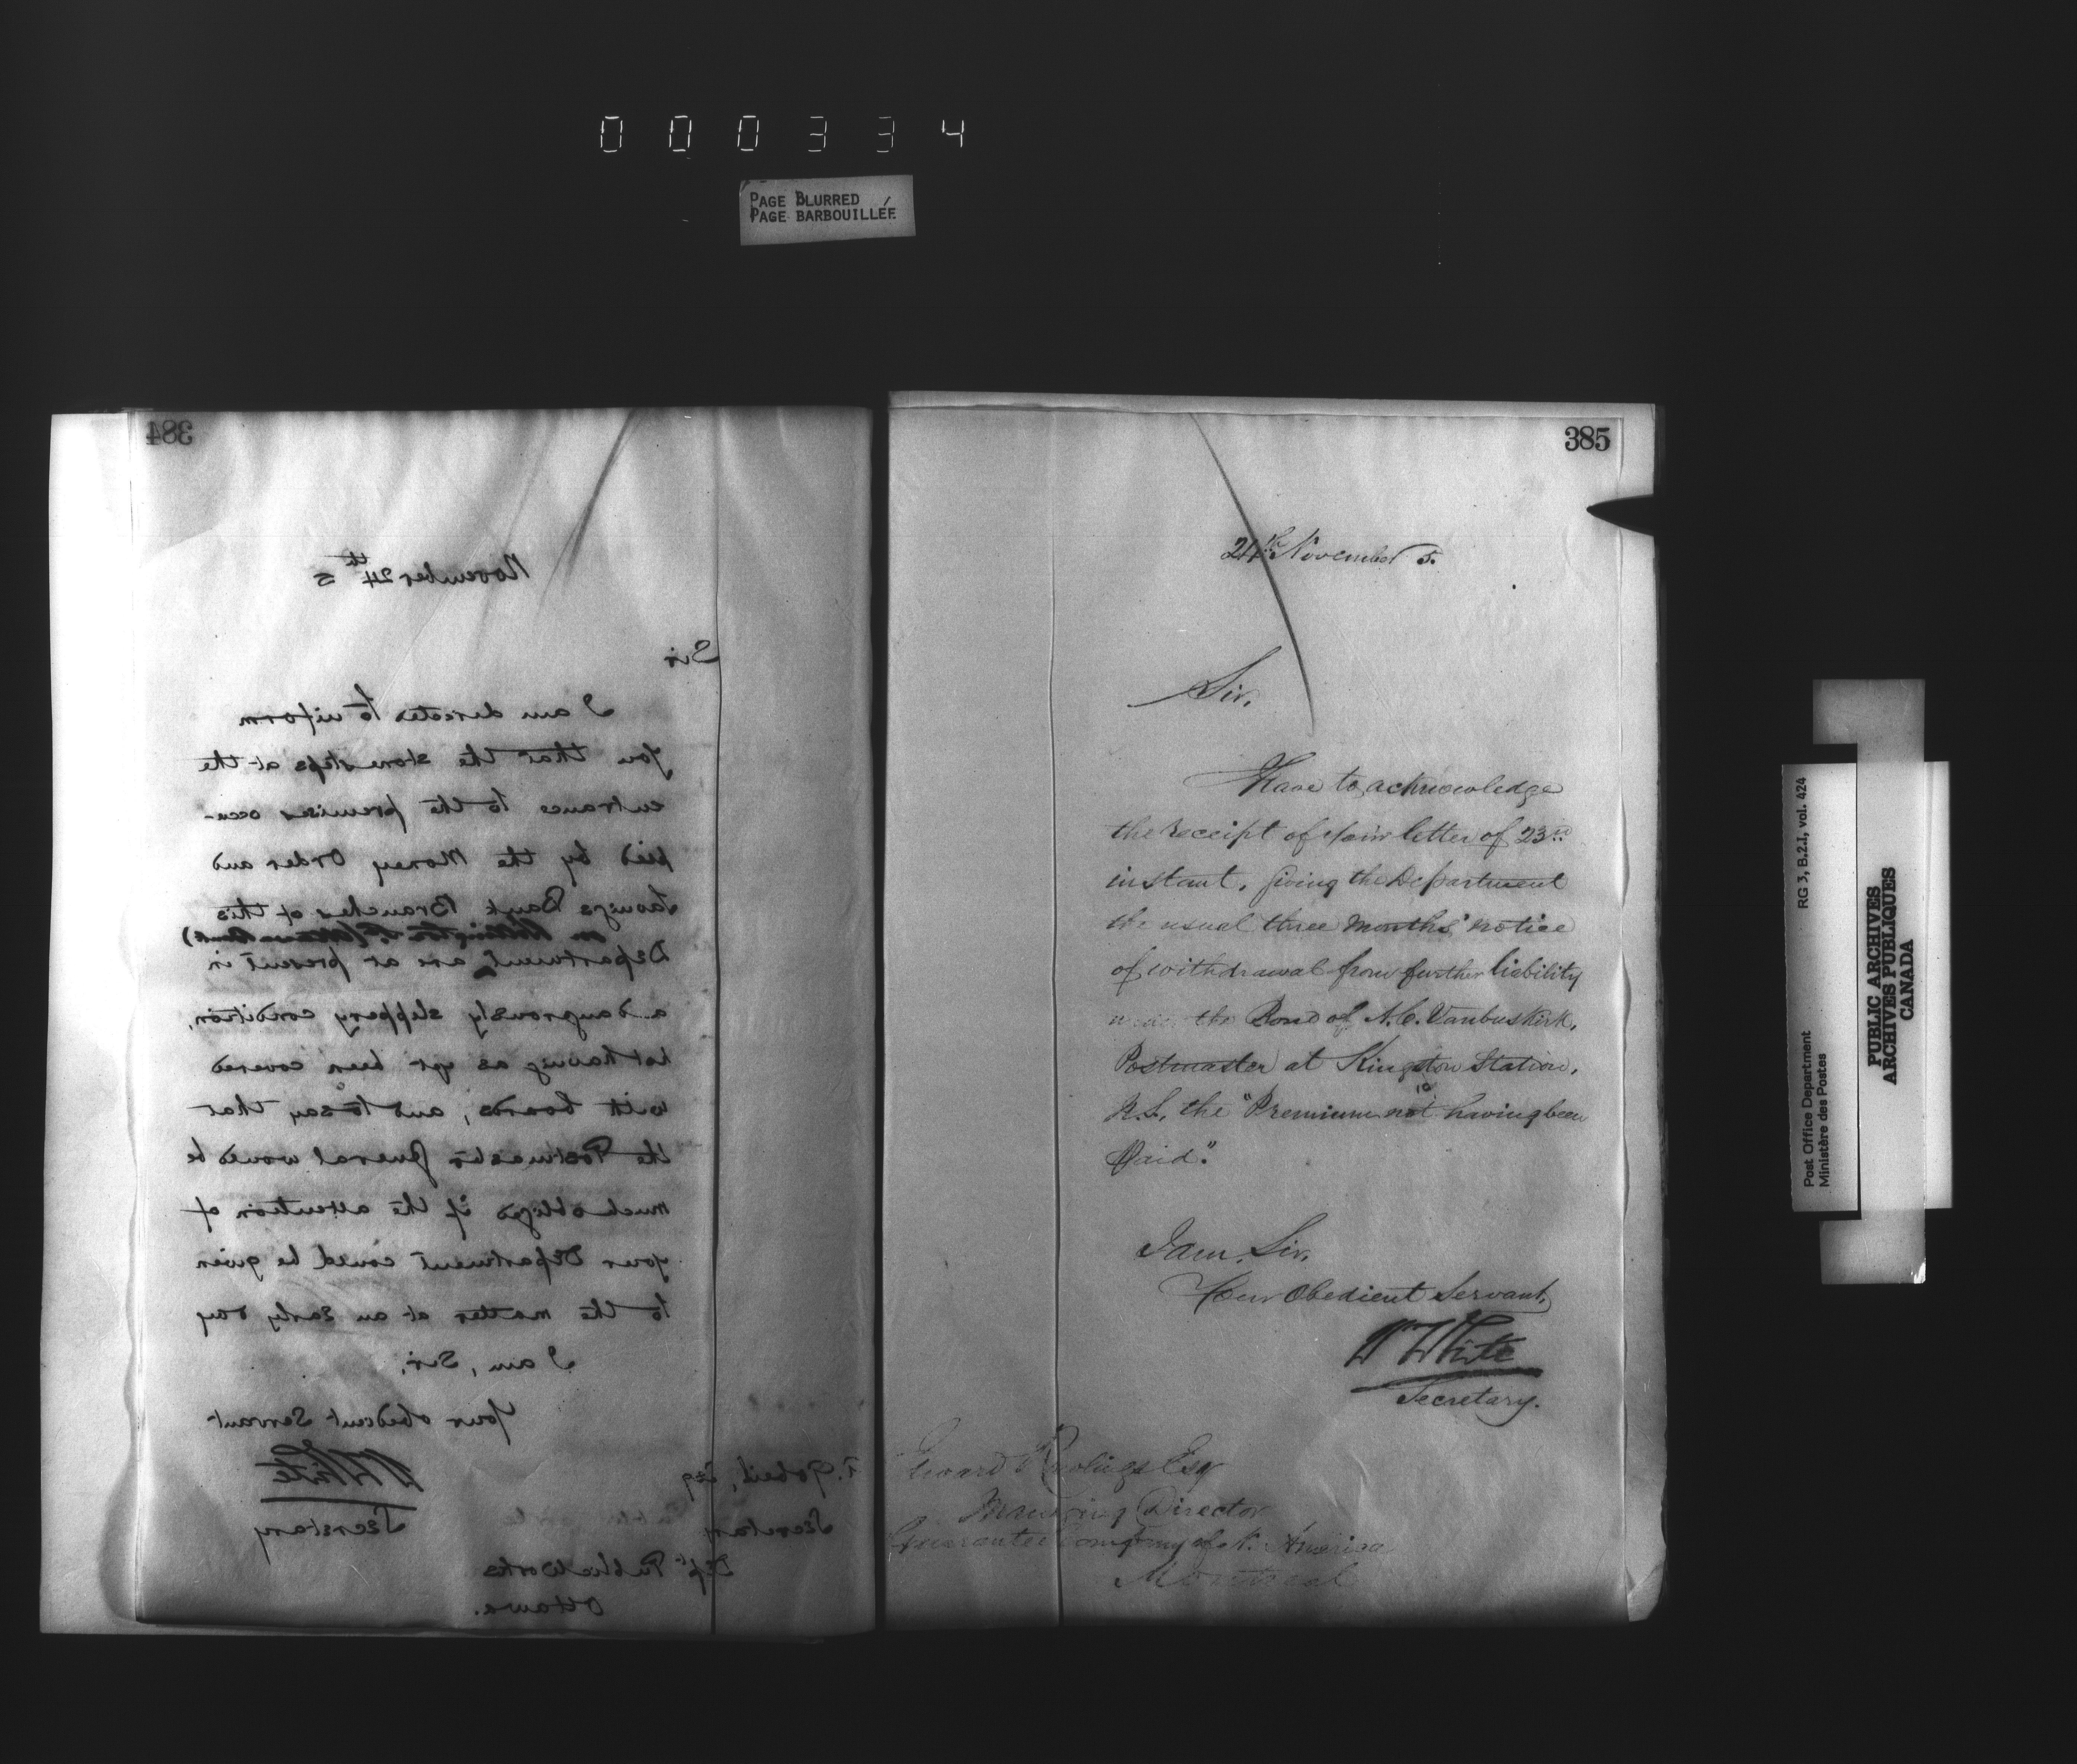 000334
PAGE BLURRED
PAGE BARBOUILLÉE
384
November 24th 5
Sir
I am directed to inform
you that the stone steps at the
entrance to the premises occu-
pied by the Money Order and
Savings Bank Branches of this
on Wellington St (Ottawa Bank)
Department are at present in
a dangerously slippery condition,
not having as yet been covered
with boards, and to say that
the Postmaster General would be
much obliged if the attention of
your Department could be given
to the matter at an early day
I am, Sir,
Your obedient Servant
WWhite
Secretary
Gobeil, Esq
Secretary
Dept Public Works
Ottawa.
385
24th November 5.
Sir,
I have to acknowledge
the receipt of your letter of 23rd
instant, giving the Department
the usual three months' notice
of withdrawal from further liability
under the Bond of N.C. Vanbuskirk,
Postmaster at Kingston Station,
N.S., the "Premium not having been
Paid".
I am, Sir,
Your Obedient Servant,
Wm White
Secretary.
Edward Rawlings Esq
Managing Director
Guarantee Company of N. America
Montreal
RG 3, B.2.1, vol. 424
Post Office Department
Ministère des Postes
PUBLIC ARCHIVES
ARCHIVES PUBLIQUES
CANADA